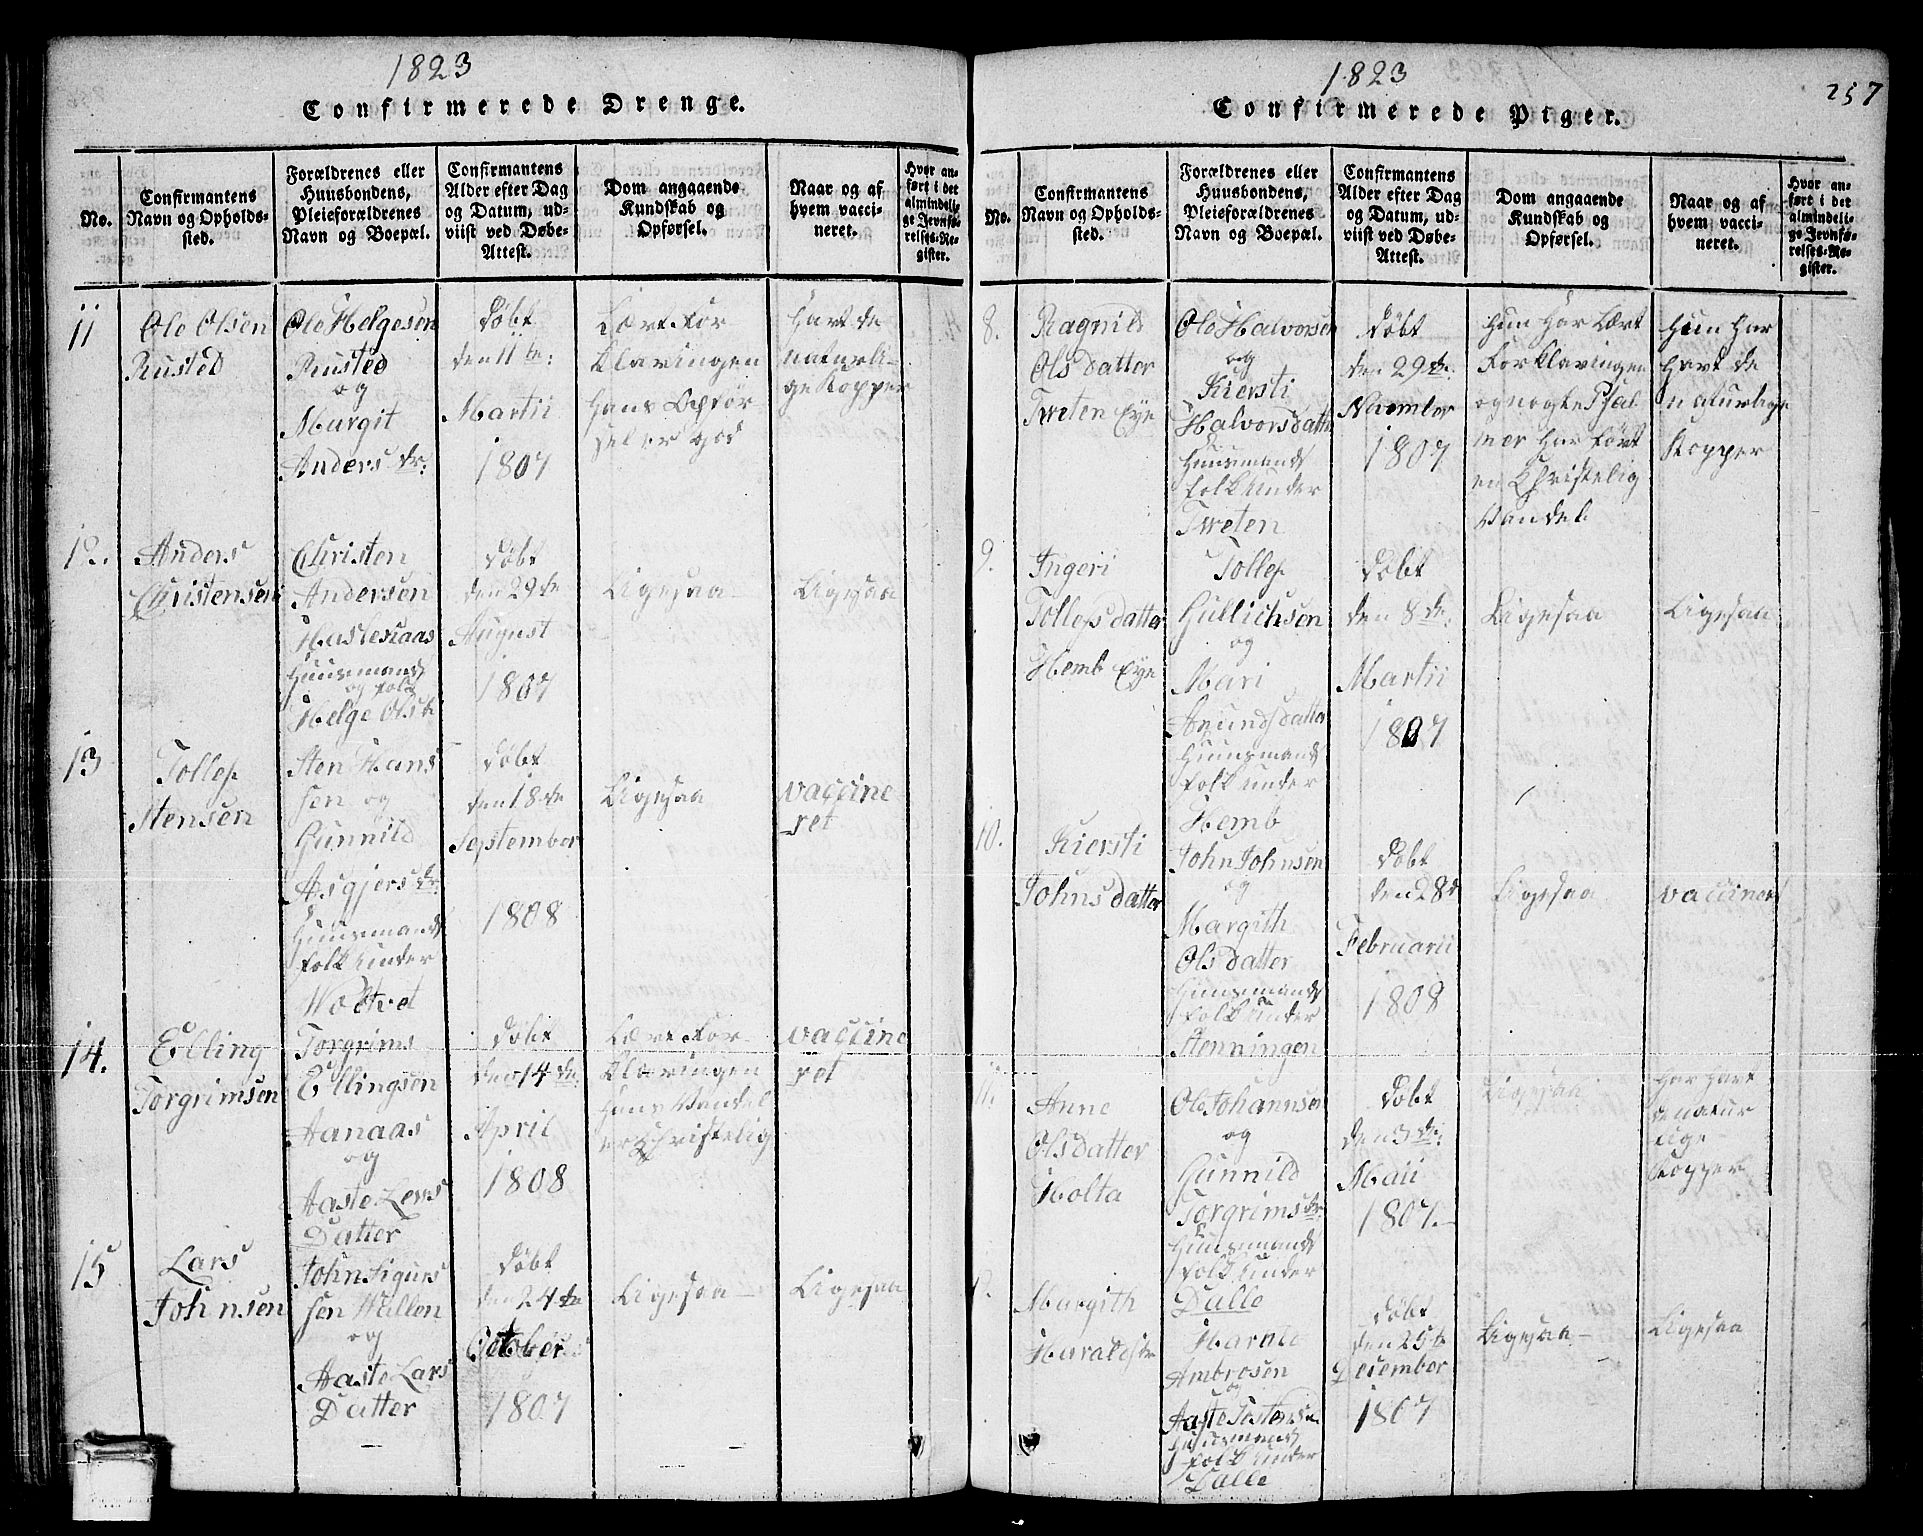 1823
Confirmerede Drenge.
No.
Confirmantens
Navn og Opholds-
sted.
Forældrenes eller
Huusbondens,
Pleieforældrenes
Navn og Boepæl.
Confirmantens
Alder efter Dag
og Datum, ud-
viist ved Døbe-
Attest.
Dom angaaende
Kundskab og
Opførsel.
Naar og af
hvem vacci-
neret.
Hvor an-
ført i det
almindeli-
ge Jevnfø-
relses-Re-
gister.
11
Ole Olsen
Rusted
Ole Helgesen
Rusted
og
Margit
Anders dr:
døbt
den 11te:
Martii
1807
Lært For
klaringen
hans Opför
sel er god
havt de
naturli-
ge Kopper
12.
Anders
Christensen
Christen
Andersen
Haslestaas
Huusmands
og folk
Helge Ols
døbt
den 29de
August
1807
Ligesaa
Ligesaa
13
Tollef
Stensen
Sten Hans
sen og
Gunnild
Asgjers dr:
Huusmands
folk under
Wodtvet
døbt
den 18de
September
1808
Ligesaa
vaccine
ret
14.
Elling
Torgrimsen
Torgrims
Ellingsen
Aanaas
og
Aaste Lars
Datter
døbt
den 14de
April
1808
Lært For
klaringen
hans Vandel
er Christelig
vaccine
ret
15
Lars
Johnsen
John Sigurs
sen Wallen
og
Aaste Lars
Datter
døbt
den 24de
October
1807
Ligesaa
Ligesaa
1823
257
Confirmerede Piger.
No.
Confirmantens
Navn og Opholds-
sted.
Forældrenes eller
Huusbondens,
Pleieforældrenes
Navn og Boepæl.
Confirmantens
Alder efter Dag
og Datum, ud-
viist ved Døbe-
Attest.
Dom angaaende
Kundskab og
Opførsel.
Naar og af
hvem vacci-
neret.
Hvor an-
ført i det
almindeli-
ge Jevnfø-
relses-Re-
gister.
8.
Ragnild
Olsdatter
Tweten Eye
Ole Halvorsen
og
Kiersti
Halvorsdatter
Huusmands
folk under
Tweten
døbt
den 29de:
November
1807
hun har lært
Forklaringen
og nogle Psal
mer har ført
en Christelig
Vandel
hun har
havt de
naturlige
Kopper
9.
Ingeri
Tollefsdatter
Hemb Eye
Tollef
Gullichsen
og
Mari
Anundsdatter
Huusmands
folk under
Hemb
døbt
den 8de:
Martii
1807
Ligesaa
Ligesaa
10.
Kiersti
Johnsdatter
John Johnsen
og
Margith
Olsdatter
Huusmands
folk under
Stenningen
døbt
den 28d
Februarii
1808
Ligesaa
vacciner
11.
Anne
Olsdatter
Holta
Ole Johannsen
og
Gunnild
Torgrims dr:
Huusmands
folk under
Dalle
døbt
den 3de:
Maii
1807.
Ligesaa
har havt
de natur
lige
Kopper
Margith
Haralds
Harald
Ambrosen
og
Aaste
Huusmands
folk under
Dalle
døbt
den 25te
December
1807
Ligesaa
Ligesaa